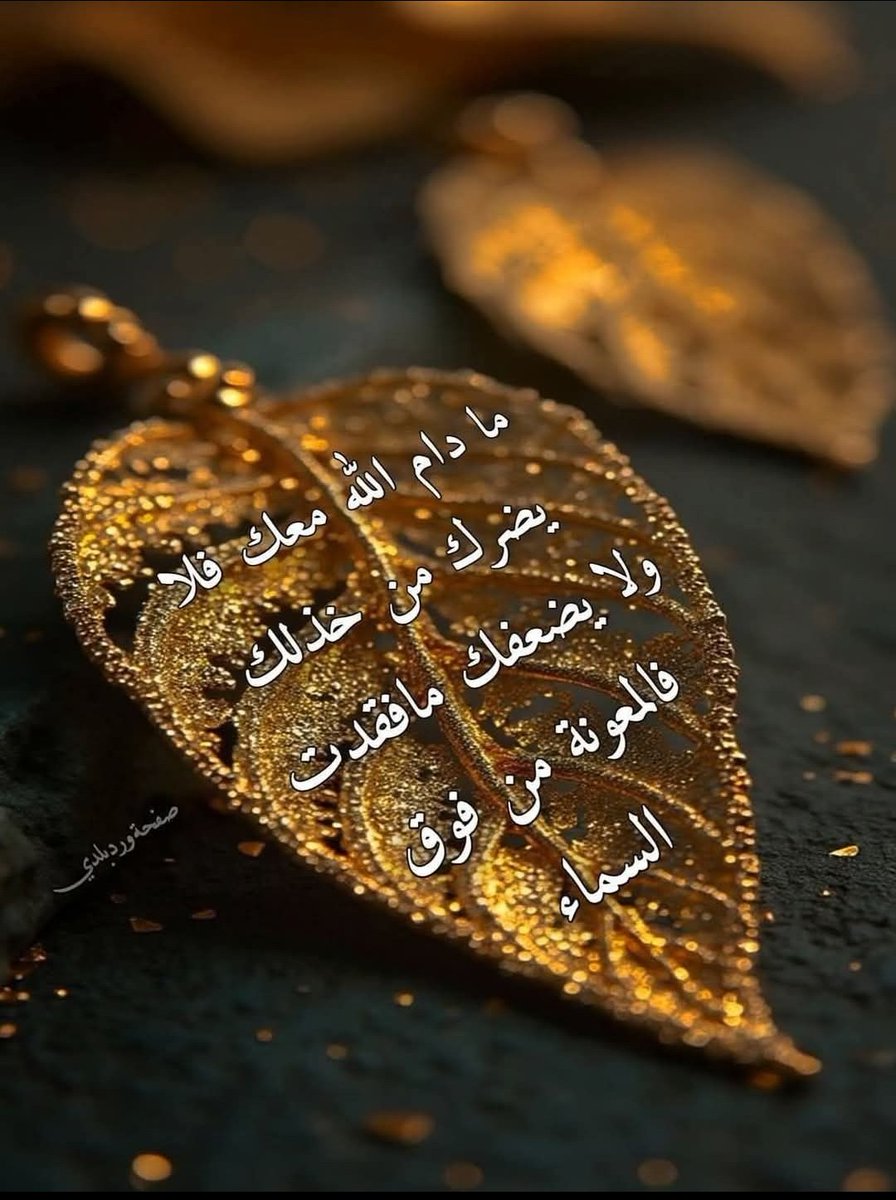 ما دام الله معك فلا
يضرك من خذلك
ولا يضعفك مافقدت
فالمعونة من فوق
السماء
صفحة ورد بلدي